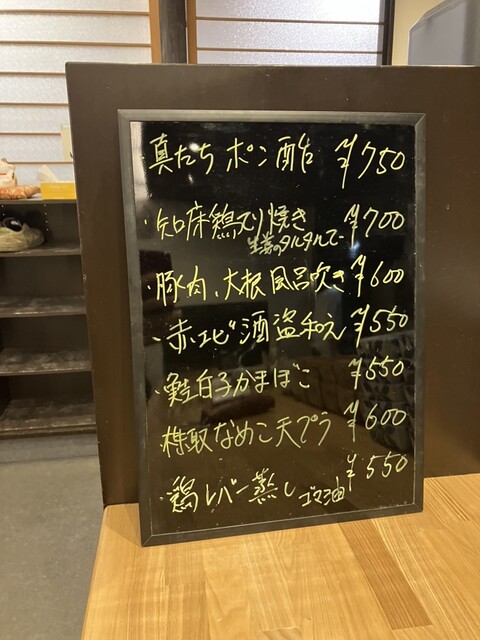 真たち ポン酢 ¥750
・知床鶏てり焼き ¥700
生姜のタルタルで
・豚肉、大根風呂吹き ¥600
・赤エビ酒盗和え ¥550
・鮭白子かまぼこ ¥550
椎取なめこ天プラ ¥600
・鶏レバー蒸し ゴマ油 ¥550